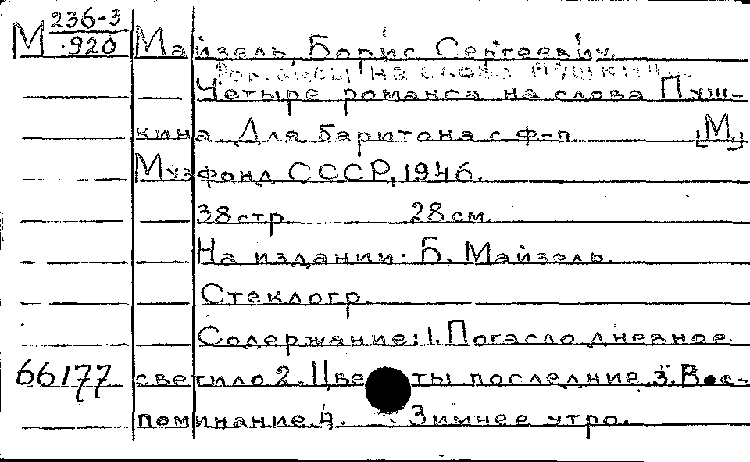 М 236-3
920
Майзель, Борис Сергеевич.
Романсы на слова Пушкина
Четыре романса на слова Пуш-
кина. Для баритона с ф-п. [М.]
Музфонд СССР, 1946.
38 стр. 28 см.
На издании: Б. Майзель.
Стеклогр.
Содержание: 1. Погасло дневное
66177 светило 2. Цветы последние 3. Вос-
поминание. 4. Зимнее утро.